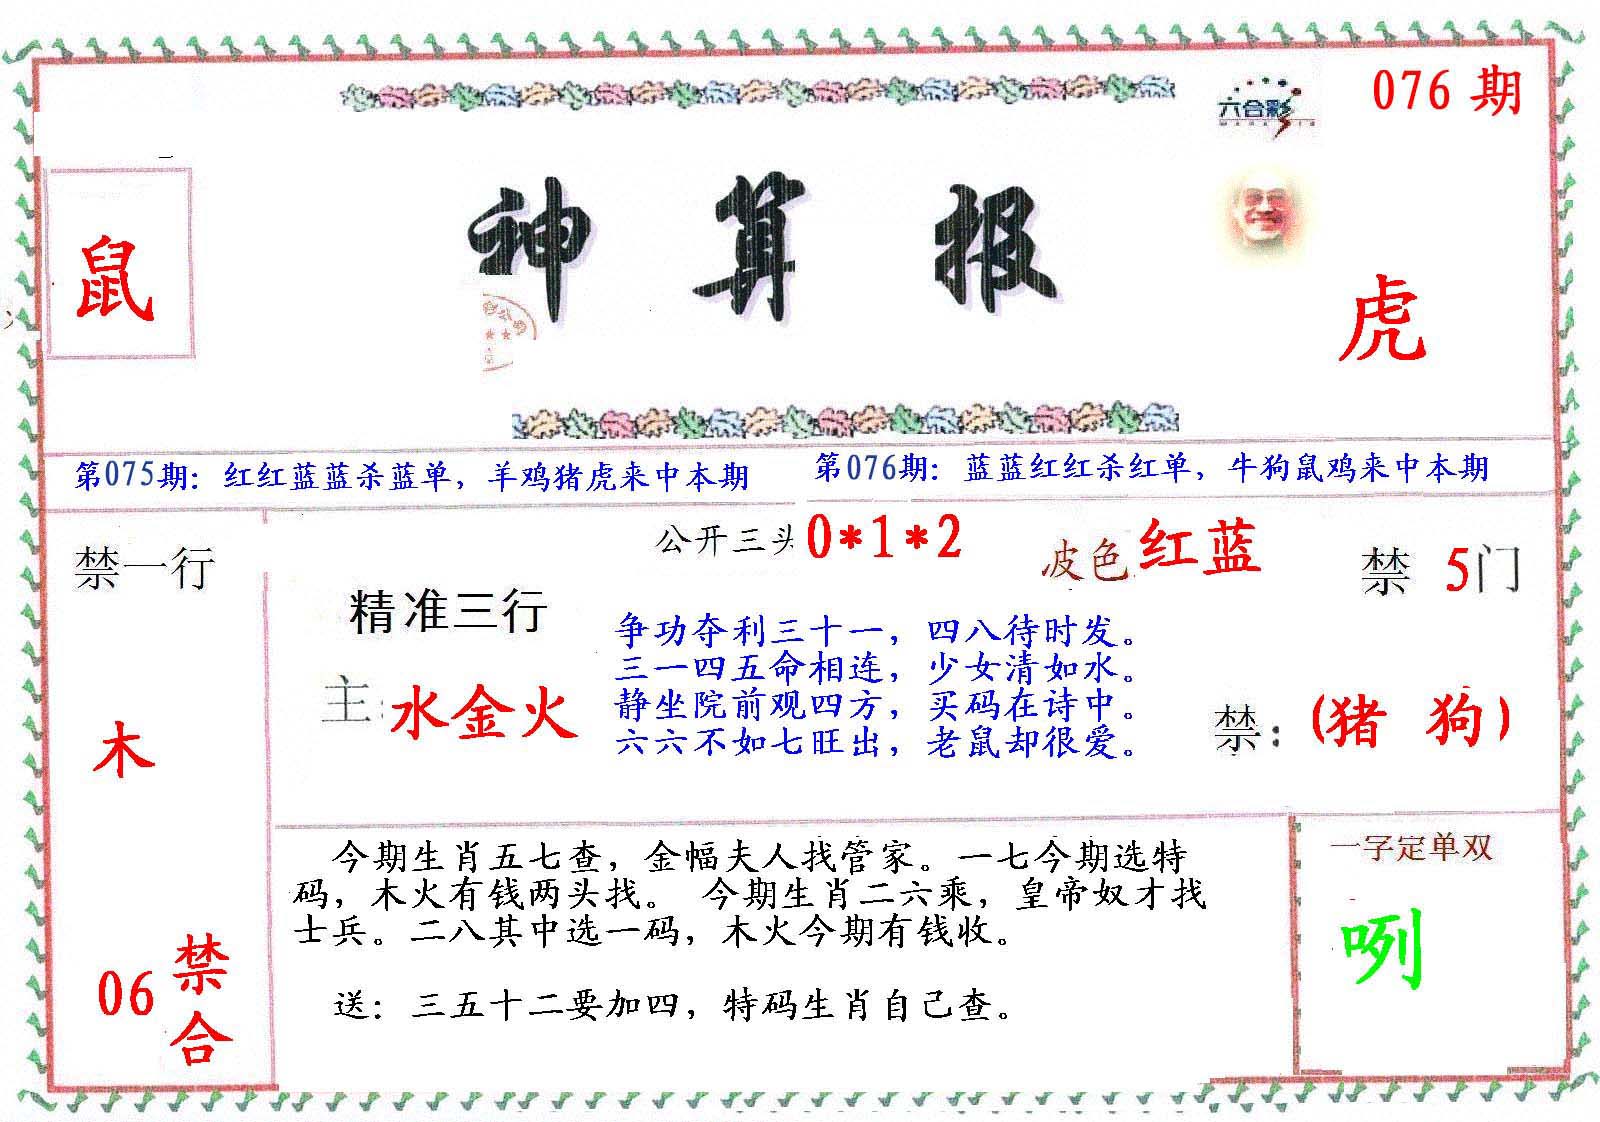 六合彩
076 期
鼠
神算报
虎
第075期：红红蓝蓝杀蓝单，羊鸡猪虎来中本期
第076期：蓝蓝红红杀红单，牛狗鼠鸡来中本期
禁一行
公开三头 0*1*2
皮色 红蓝
禁 5门
精准三行
主：水金火
争功夺利三十一，四八待时发。
三一四五命相连，少女清如水。
静坐院前观四方，买码在诗中。
六六不如七旺出，老鼠却很爱。
禁：(猪 狗)
木
06 禁合
今期生肖五七查，金幅夫人找管家。一七今期选特
码，木火有钱两头找。 今期生肖二六乘，皇帝奴才找
士兵。二八其中选一码，木火今期有钱收。
送：三五十二要加四，特码生肖自己查。
一字定单双
咧